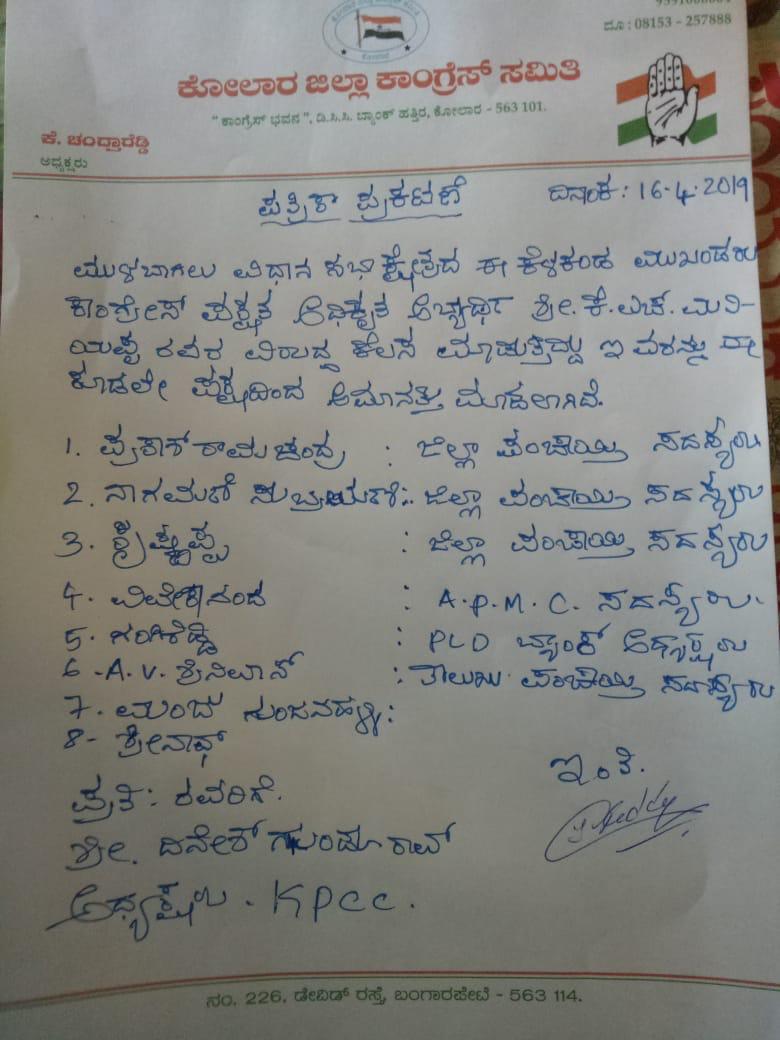 ದೂ : 08153 - 257888
ಕೋಲಾರ ಜಿಲ್ಲಾ ಕಾಂಗ್ರೆಸ್ ಸಮಿತಿ
" ಕಾಂಗ್ರೆಸ್ ಭವನ ", ಡಿ.ಸಿ.ಸಿ. ಬ್ಯಾಂಕ್ ಹತ್ತಿರ, ಕೋಲಾರ - 563 101.
ಕೆ. ಚಂದ್ರಾರೆಡ್ಡಿ
ಅಧ್ಯಕ್ಷರು
ಪತ್ರಿಕಾ ಪ್ರಕಟಣೆ ದಿನಾಂಕ : 16-4-2019
ಮುಳಬಾಗಿಲು ವಿಧಾನ ಸಭಾ ಕ್ಷೇತ್ರದ ಈ ಕೆಳಕಂಡ ಮುಖಂಡರು
ಕಾಂಗ್ರೇಸ್ ಪಕ್ಷದ ಅಧಿಕೃತ ಅಭ್ಯರ್ಥಿ ಶ್ರೀ. ಕೆ. ಎಚ್. ಮುನಿ-
ಯಪ್ಪ ರವರ ವಿರುದ್ಧ ಕೆಲಸ ಮಾಡುತ್ತಿದ್ದು ಇವರನ್ನು ಈ
ಕೂಡಲೇ ಪಕ್ಷದಿಂದ ಅಮಾನತ್ತು ಮಾಡಲಾಗಿದೆ.
1. ಪ್ರಕಾಶ್ ರಾಮಚಂದ್ರ : ಜಿಲ್ಲಾ ಪಂಚಾಯ್ತಿ ಸದಸ್ಯರು
2. ನಾಗಮಣಿ : ಜಿಲ್ಲಾ ಪಂಚಾಯ್ತಿ ಸದಸ್ಯರು
3. ಕೃಷ್ಣಪ್ಪ : ಜಿಲ್ಲಾ ಪಂಚಾಯ್ತಿ ಸದಸ್ಯರು
4. ವಿವೇಕಾನಂದ : A.P.M.C. ಸದಸ್ಯರು.
5. : PLD ಬ್ಯಾಂಕ್ ಅಧ್ಯಕ್ಷರು
6 - A.V. ಶ್ರೀನಿವಾಸ್ : ತಾಲುಖು ಪಂಚಾಯ್ತಿ ಸದಸ್ಯರು
7.
8- ಶ್ರೀನಾಥ್
ಇಂತಿ.
ಪ್ರತಿ : ರವರಿಗೆ.
ಶ್ರೀ. ದಿನೇಶ್ ಗುಂಡುರಾವ್
ಅಧ್ಯಕ್ಷರು. KPCC.
ನಂ. 226, ಡೇವಿಡ್ ರಸ್ತೆ, ಬಂಗಾರಪೇಟೆ - 563 114.